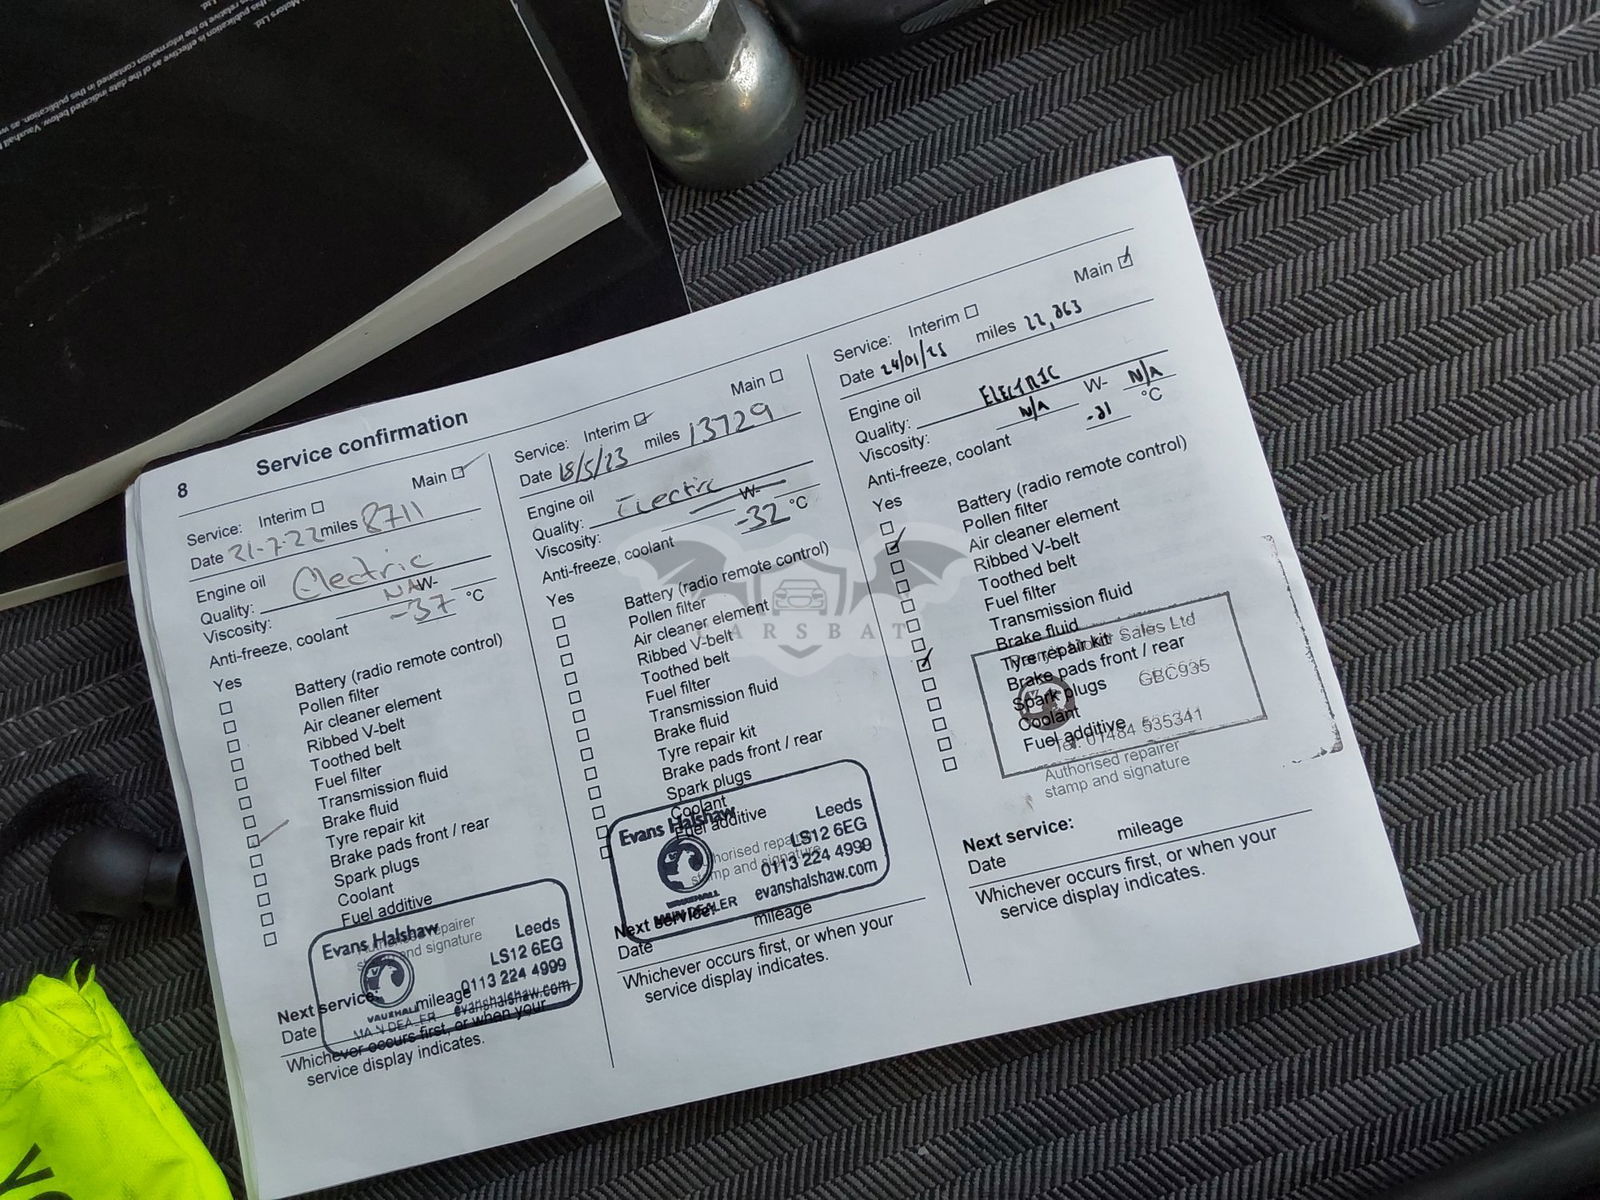 Motors Ltd.
ation is effective as of the date indicated below. Vauxhall
this publication, as w
relative to the information contained
8
Service confirmation
Service: Interim Main
Date 21-7-22 miles 8711
Engine oil
Quality: Electric
Viscosity: N/A W-
Anti-freeze, coolant -37 °C
Yes
Battery (radio remote control)
Pollen filter
Air cleaner element
Ribbed V-belt
Toothed belt
Fuel filter
Transmission fluid
Brake fluid
Tyre repair kit
Brake pads front / rear
Spark plugs
Coolant
Fuel additive
Authorised repairer
stamp and signature
Evans Halshaw Leeds
LS12 6EG
0113 224 4999
VAUXHALL evanshalshaw.com
MAIN DEALER
Next service:
Date mileage
Whichever occurs first, or when your
service display indicates.
Service: Interim Main
Date 18/5/23 miles 13729
Engine oil
Quality: Electric
Viscosity: W-
Anti-freeze, coolant -32 °C
Yes
Battery (radio remote control)
Pollen filter
Air cleaner element
Ribbed V-belt
Toothed belt
Fuel filter
Transmission fluid
Brake fluid
Tyre repair kit
Brake pads front / rear
Spark plugs
Coolant
Fuel additive
Authorised repairer
stamp and signature
Evans Halshaw Leeds
LS12 6EG
0113 224 4999
VAUXHALL evanshalshaw.com
MAIN DEALER
Next service:
Date mileage
Whichever occurs first, or when your
service display indicates.
Service: Interim Main
Date 24/01/25 miles 22,863
Engine oil
Quality: ELECTRIC
Viscosity: N/A W- N/A
Anti-freeze, coolant -31 °C
Yes
Battery (radio remote control)
Pollen filter
Air cleaner element
Ribbed V-belt
Toothed belt
Fuel filter
Transmission fluid
Brake fluid
Tyre repair kit
Brake pads front / rear
Spark plugs
Coolant
Fuel additive
Sales Ltd
GBC935
Tel: 01484 535341
Authorised repairer
stamp and signature
Next service:
Date mileage
Whichever occurs first, or when your
service display indicates.
CARSBAT